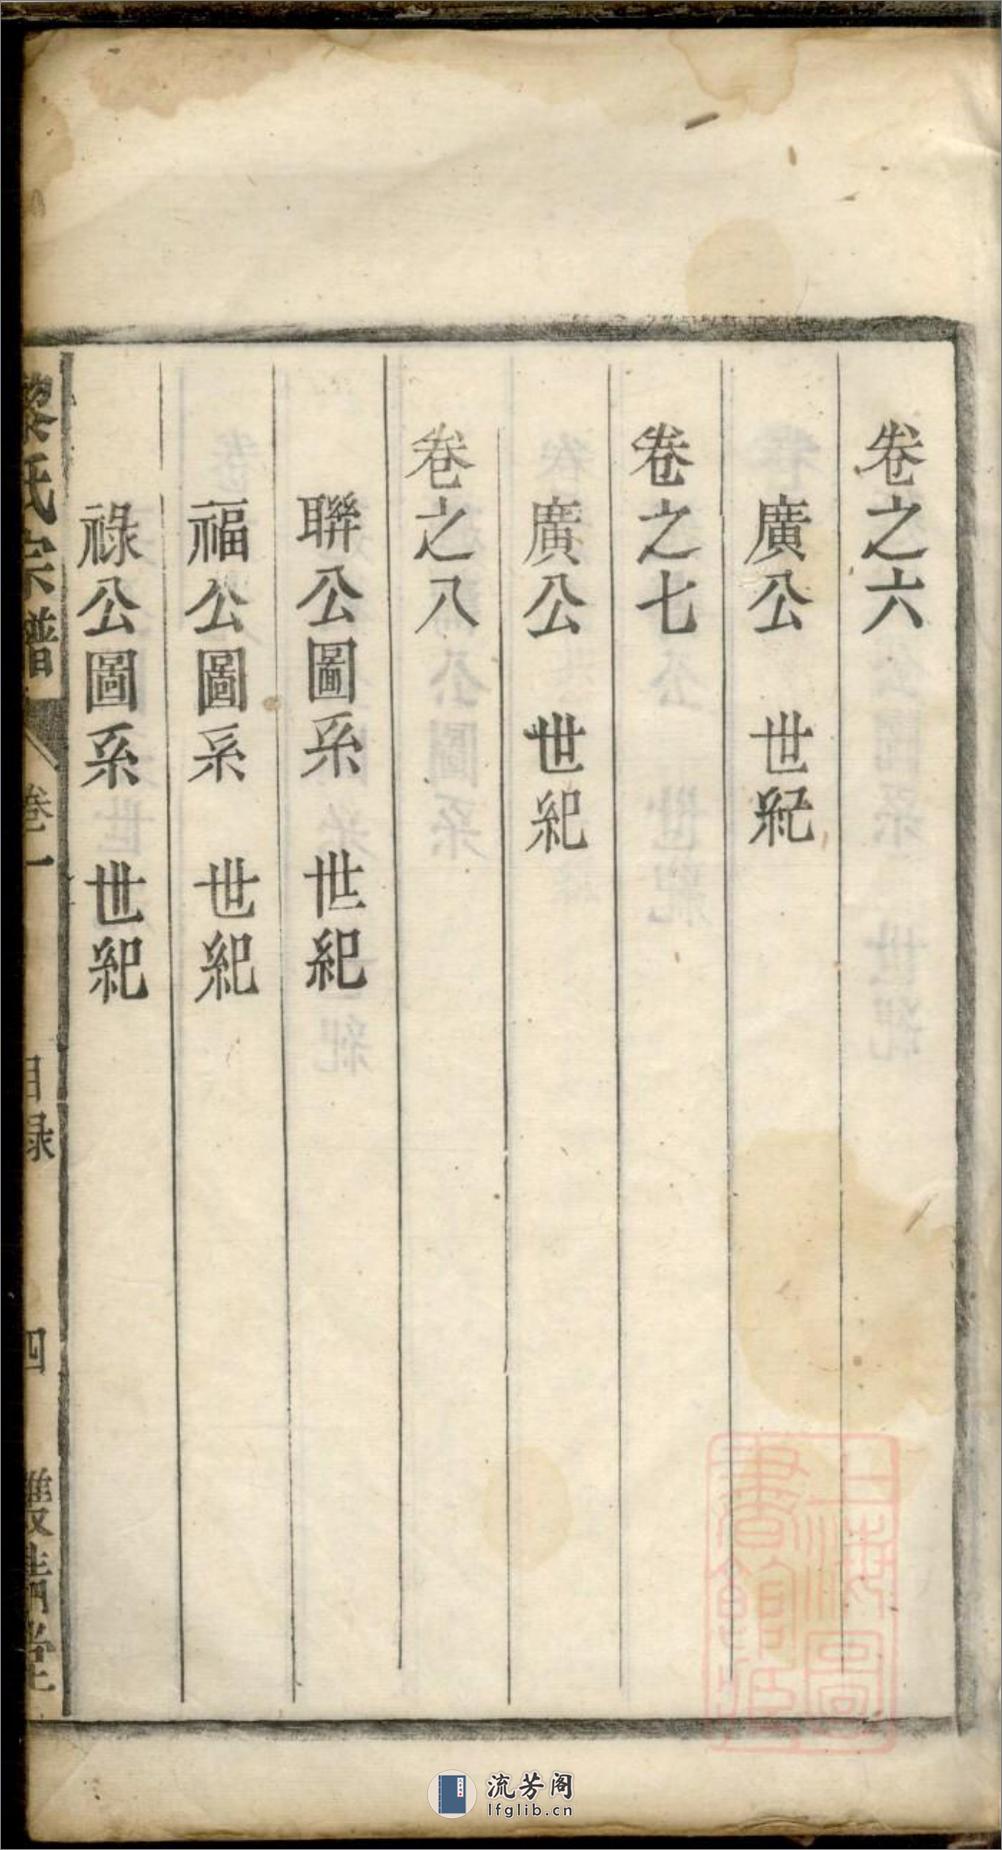 卷之六
廣公　世紀
卷之七
廣公　世紀
卷之八
聯公圖系　世紀
福公圖系　世紀
祿公圖系　世紀
黎氏宗譜　卷一　目録　四
上海圖書館藏
流芳阁
lfglib.cn